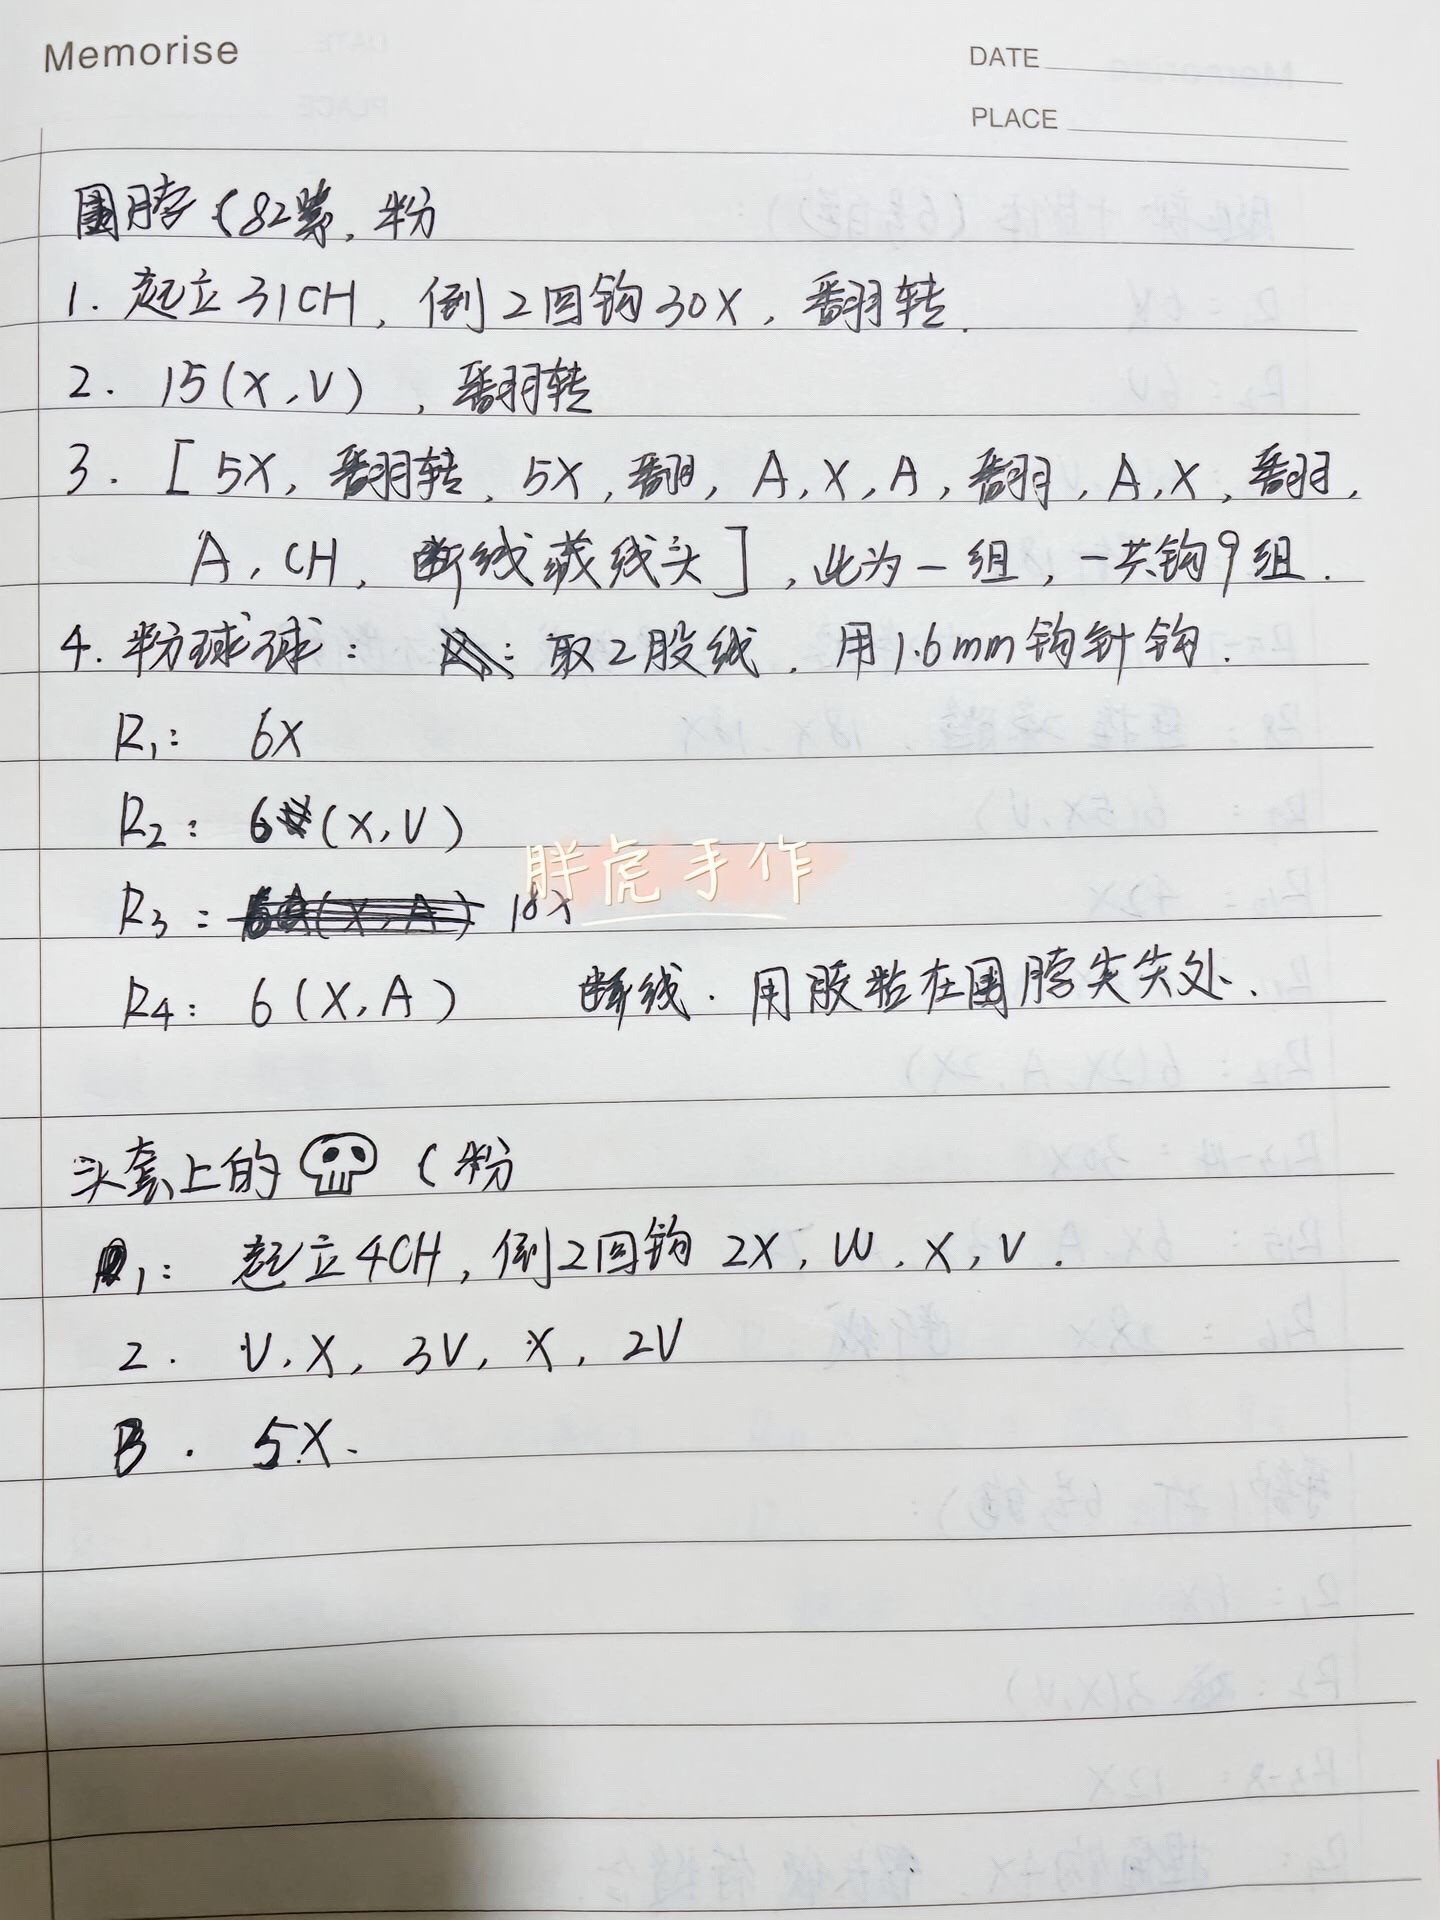 Memorise
DATE
PLACE
围脖（82紫，粉
1. 起立31CH，倒2回钩30X，翻转.
2. 15(X,V)，翻转
3. [5X，翻转，5X，翻，A,X,A，翻，A,X，翻，
A，CH，断线藏线头]，此为一组，一共钩9组.
4. 粉球球：取2股线，用1.6mm钩针钩.
R1: 6X
R2: 6(X,V)
R3: 18X
R4: 6(X,A) 断线．用胶粘在围脖尖尖处．
胖虎手作
头套上的（粉
1: 起立4CH，倒2回钩2X，W，X，V.
2. V，X，3V，X，2V
3. 5X.